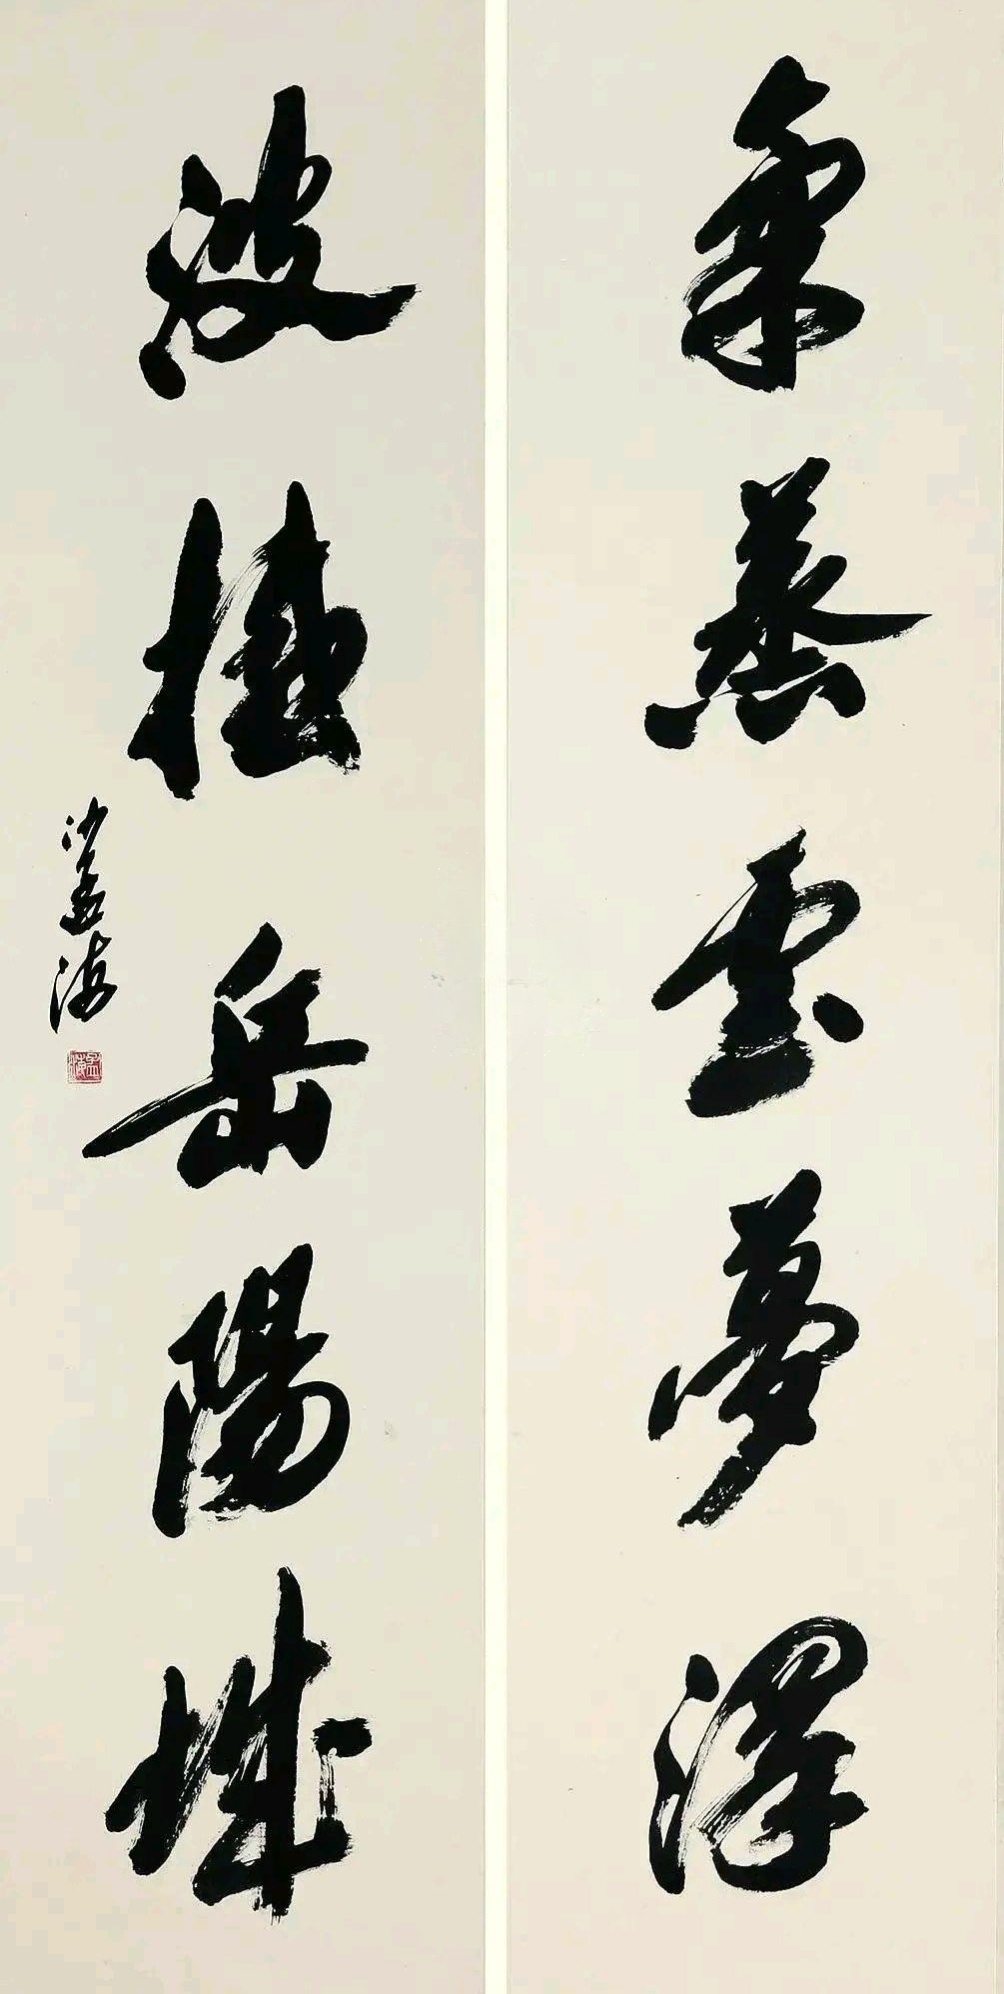 氣蒸雲夢澤
波撼岳陽城
沙孟海
孟海